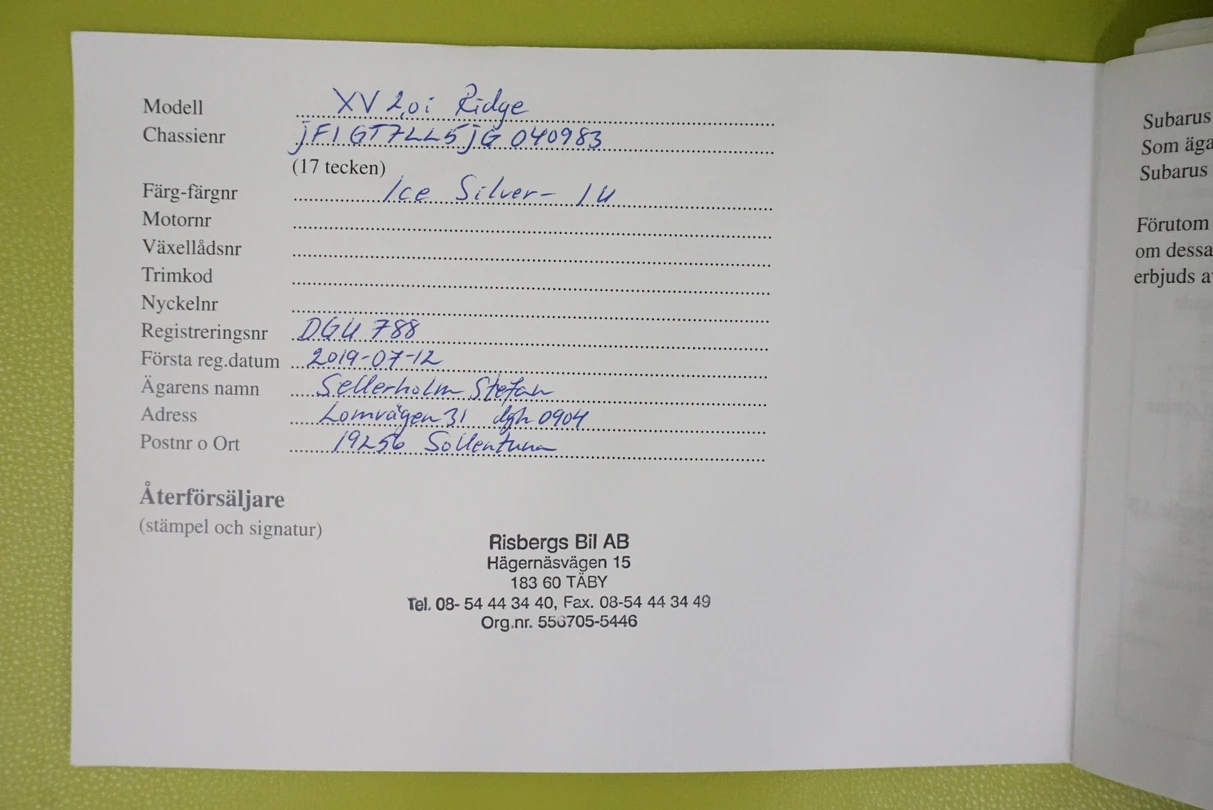 Modell XV 2,0i Ridge
Chassienr jF1GT7LL5jG040983
(17 tecken)
Färg-färgnr Ice Silver- 1U
Motornr
Växellådsnr
Trimkod
Nyckelnr
Registreringsnr DGU 788
Första reg.datum 2019-07-12
Ägarens namn Sellerholm Stefan
Adress Lomvägen 31 lgh 0904
Postnr o Ort 19256 Sollentuna
Återförsäljare
(stämpel och signatur)
Risbergs Bil AB
Hägernäsvägen 15
183 60 TÄBY
Tel. 08- 54 44 34 40, Fax. 08-54 44 34 49
Org.nr. 556705-5446
Subarus
Som äga
Subarus
Förutom
om dessa
erbjuds a